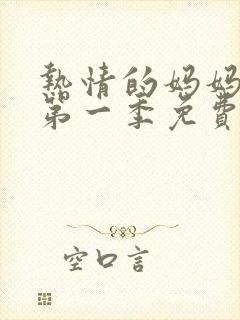 熱情的妈妈
第一季免費
空口言